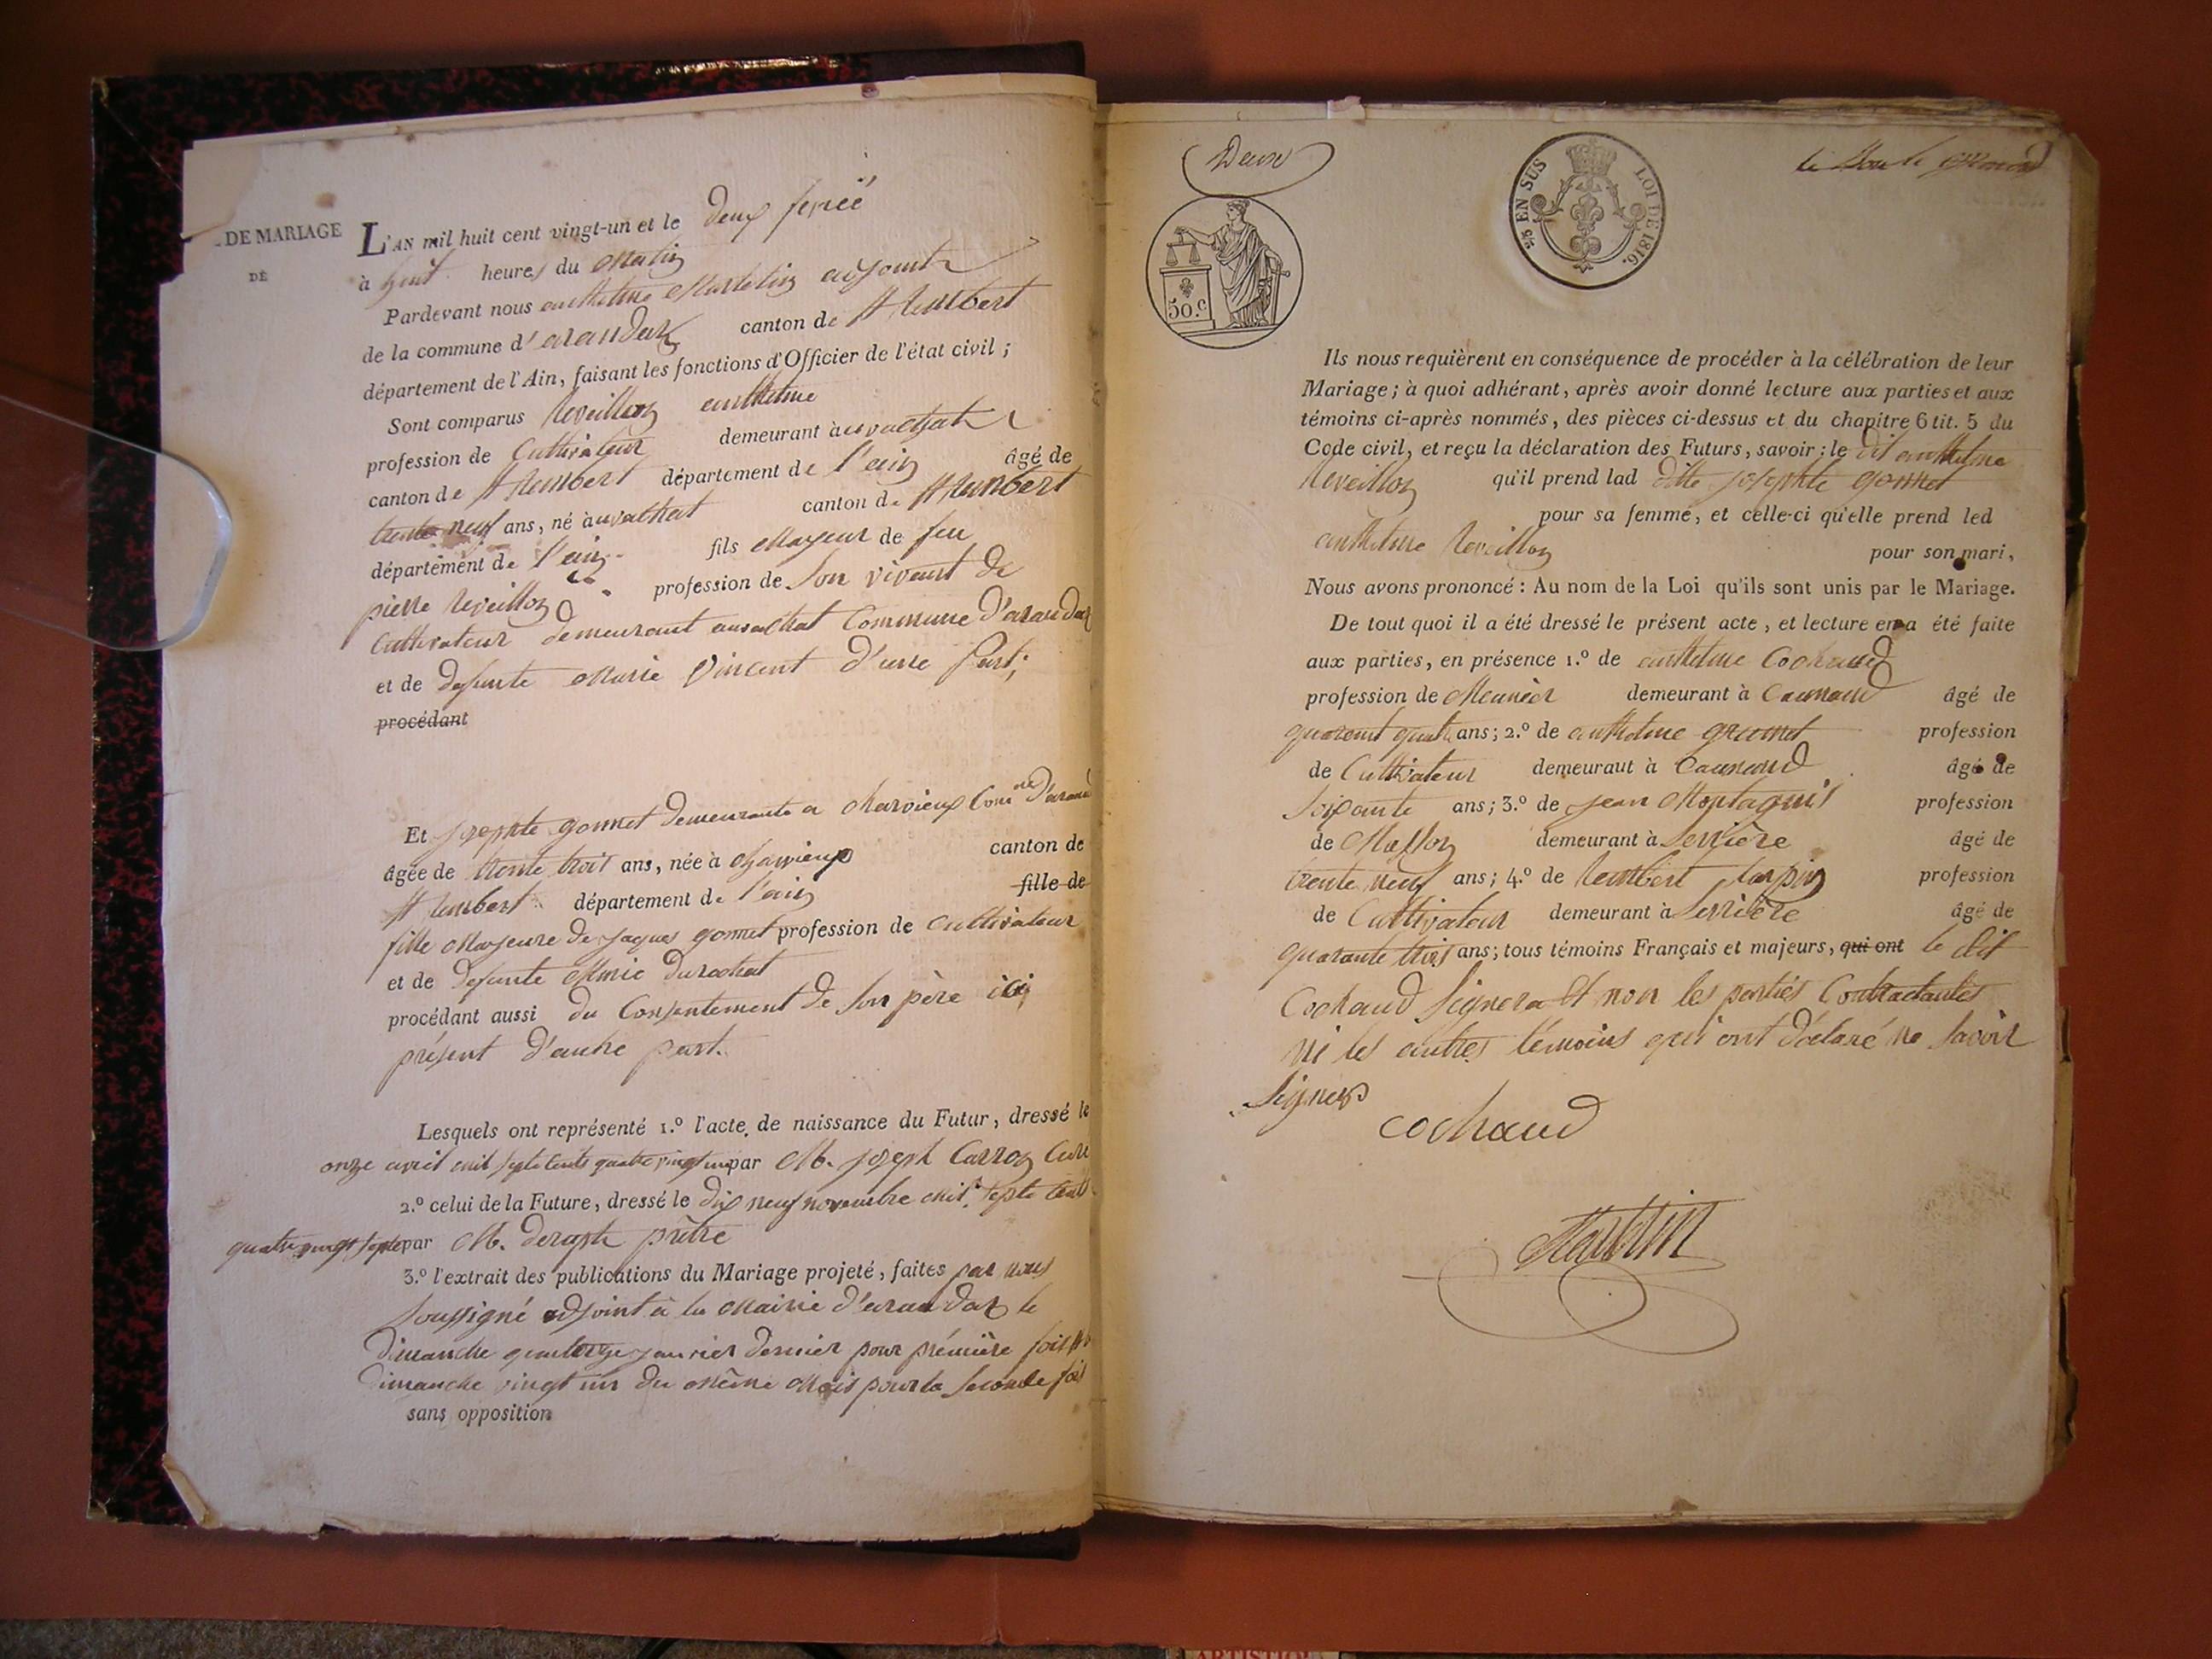 DE MARIAGE
DE
L'AN mil huit cent vingt-un et le deux
à huit heures du Matin
Pardevant nous anthelme Martelin adjoint
de la commune d'arandas canton de St Rambert
département de l'Ain, faisant les fonctions d'Officier de l'état civil ;
Sont comparus Reveillon anthelme
profession de Cultivateur demeurant à
canton de St Rambert département de l'ain âgé de
trente neuf ans, né à canton de St Rambert
département de l'ain fils Majeur de feu
pierre Reveillon profession de Son vivant de
Cultivateur demeurant Commune d'arandas
et de defunte Marie Vincent d'une Part;
procédant
Et josephte gonnet demeurante a Charvieux Comne d'arand
âgée de trente trois ans, née à Charvieux canton de
St Rambert département de l'ain fille de
fille Majeure de jaques gonnet profession de Cultivateur
et de defunte Marie
procédant aussi du Consentement de Son père ici
présent d'autre part.
Lesquels ont représenté 1.º l'acte de naissance du Futur, dressé le
onze avril mil septe cents quatre vingt un par M. joseph Carron Curé
2.º celui de la Future, dressé le dix neuf novembre mil septe cents
quatre vingt septe par M. prêtre
3.º l'extrait des publications du Mariage projeté, faites par nous
soussigné adjoint à la Mairie d'arandas le
Dimanche quatorze janvier dernier pour première fois
Dimanche vingt un du même Mois pour la Seconde fois
sans opposition
Deux
25 EN SUS
LOI DE 1816.
50.C
Ils nous requièrent en conséquence de procéder à la célébration de leur
Mariage ; à quoi adhérant, après avoir donné lecture aux parties et aux
témoins ci-après nommés, des pièces ci-dessus et du chapitre 6 tit. 5 du
Code civil, et reçu la déclaration des Futurs, savoir : le dit anthelme
Reveillon qu'il prend lad ditte josephte gonnet
pour sa femme, et celle-ci qu'elle prend led
anthelme Reveillon pour son mari,
Nous avons prononcé : Au nom de la Loi qu'ils sont unis par le Mariage.
De tout quoi il a été dressé le présent acte, et lecture en a été faite
aux parties, en présence 1.º de anthelme Cochaud
profession de Meunier demeurant à âgé de
quarent quatre ans ; 2.º de anthelme profession
de Cultivateur demeuraut à âgé de
Soixante ans ; 3.º de jean profession
de Masson demeurant à Serrière âgé de
trente neuf ans ; 4.º de Rambert profession
de Cultivateur demeurant à Serrière âgé de
quarante trois ans ; tous témoins Français et majeurs, qui ont le dit
Cochaud Signera Et non les parties Contractantes
ni les autres témoins qui ont déclaré ne Savoir
Signer
cochaud